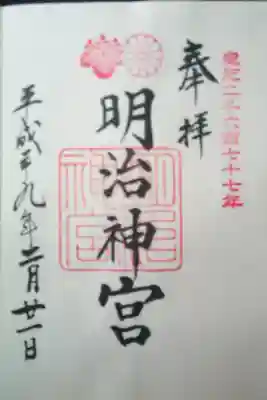 皇紀二千六百七十七年
奉拝
明治神宮
明治神宮
平成廿九年十二月廿一日